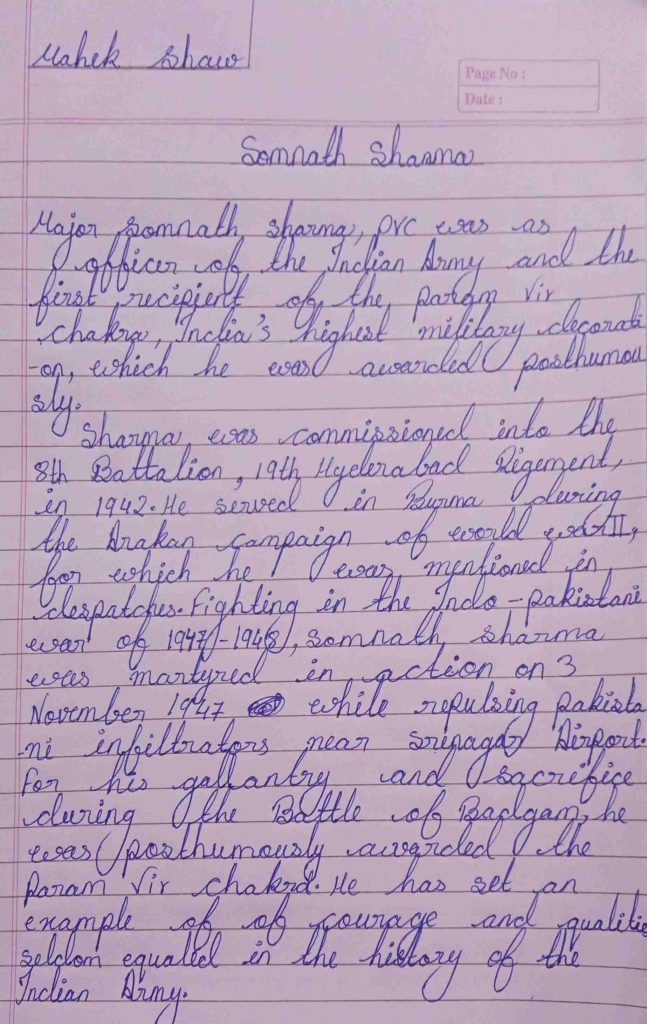 Mahek Shaw
Page No :
Date :
Somnath Sharma
Major Somnath Sharma, PVC was as
officer of the Indian Army and the
first recipient of the Param Vir
chakra, India's highest military decorati
-on, which he was awarded posthumou
sly.
Sharma was commissioned into the
8th Battalion, 19th Hyderabad Rigement,
in 1942. He served in Burma during
the Arakan Campaign of world war II,
for which he was mentioned in
despatches. Fighting in the Indo-pakistani
war of 1947-1948, Somnath Sharma
was martyred in action on 3
November 1947 while repulsing pakista
-ni infiltrators near Srinagar Airport.
For his gallantry and sacrifice
during the Battle of Badgam, he
was posthumously awarded the
Param Vir chakra. He has set an
example of of courage and qualitie
seldom equaled in the history of the
Indian Army.